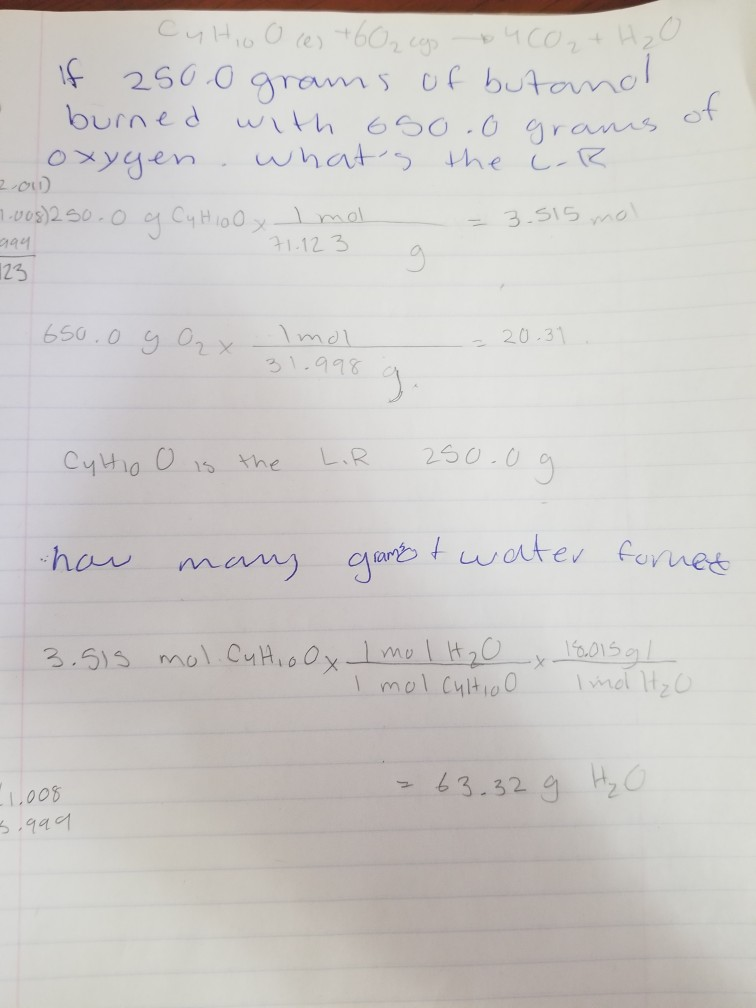 C4H10O (l) + 6O2 (g) → 4CO2 + H2O
If 250.0 grams of butanol
burned with 650.0 grams of
oxygen. what's the L-R
2.011)
1.008) 250.0 g C4H10O x 1 mol / 71.123 g = 3.515 mol
999
123
650.0 g O2 x 1 mol / 31.998 g. = 20.31
C4H10O is the L.R 250.0 g
how many grams + water formed
3.515 mol C4H10O x 1 mol H2O / 1 mol C4H10O x 18.015 g / 1 mol H2O
= 63.32 g H2O
1.008
5.999